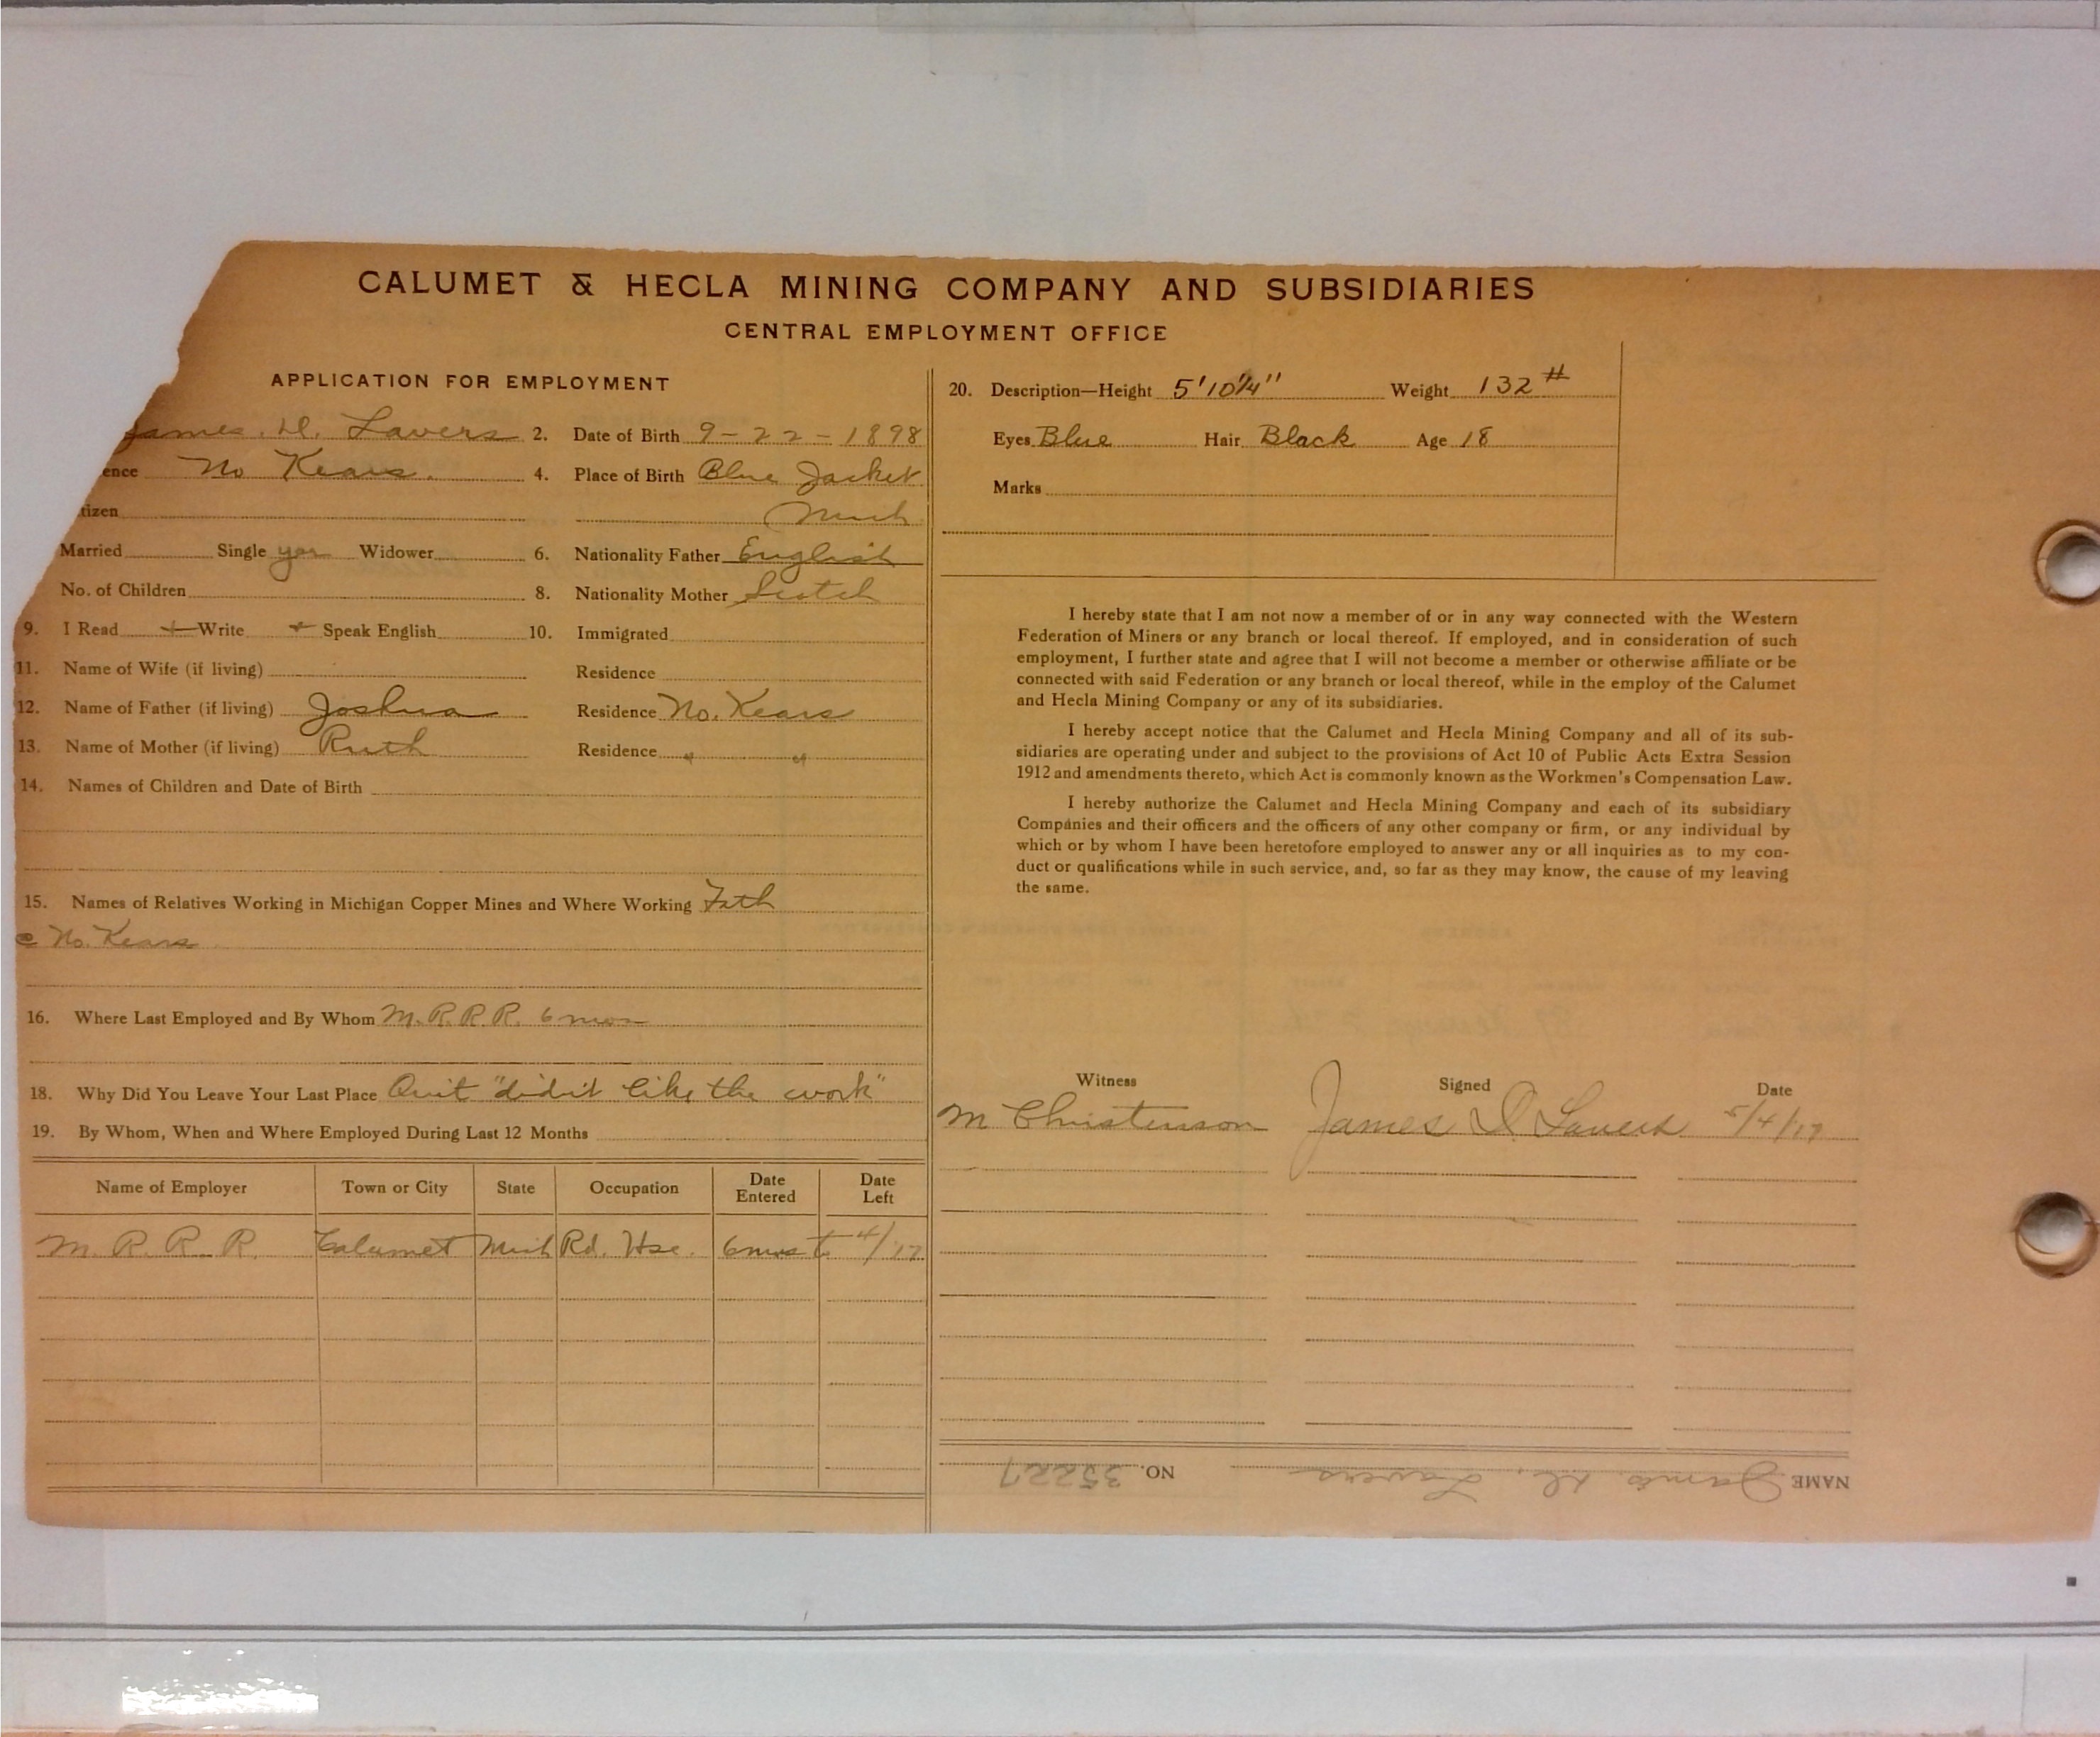 CALUMET & HECLA MINING COMPANY AND SUBSIDIARIES
CENTRAL EMPLOYMENT OFFICE
APPLICATION FOR EMPLOYMENT
James. D. Lavers 2. Date of Birth 9-22-1898
ence No Kears. 4. Place of Birth Blue Jacket
tizen Mich
Married Single yes Widower 6. Nationality Father English
No. of Children 8. Nationality Mother Scotch
9. I Read + Write + Speak English 10. Immigrated
11. Name of Wife (if living) Residence
12. Name of Father (if living) Joshua Residence No. Kears
13. Name of Mother (if living) Ruth Residence " "
14. Names of Children and Date of Birth
15. Names of Relatives Working in Michigan Copper Mines and Where Working Fath
No. Kears
16. Where Last Employed and By Whom M.R.R.R. 6 mos
18. Why Did You Leave Your Last Place Quit "didn't like the work"
19. By Whom, When and Where Employed During Last 12 Months
Name of Employer Town or City State Occupation Date Entered Date Left
M. R. R. R. Calumet Mich Rd. Hse. 6 mos to 4/17
20. Description—Height 5'10¼" Weight 132#
Eyes Blue Hair Black Age 18
Marks
I hereby state that I am not now a member of or in any way connected with the Western
Federation of Miners or any branch or local thereof. If employed, and in consideration of such
employment, I further state and agree that I will not become a member or otherwise affiliate or be
connected with said Federation or any branch or local thereof, while in the employ of the Calumet
and Hecla Mining Company or any of its subsidiaries.
I hereby accept notice that the Calumet and Hecla Mining Company and all of its sub-
sidiaries are operating under and subject to the provisions of Act 10 of Public Acts Extra Session
1912 and amendments thereto, which Act is commonly known as the Workmen's Compensation Law.
I hereby authorize the Calumet and Hecla Mining Company and each of its subsidiary
Companies and their officers and the officers of any other company or firm, or any individual by
which or by whom I have been heretofore employed to answer any or all inquiries as to my con-
duct or qualifications while in such service, and, so far as they may know, the cause of my leaving
the same.
Witness Signed Date
M Christenson James D Lavers 5/4/17
NAME James D. Lavers NO. 35227